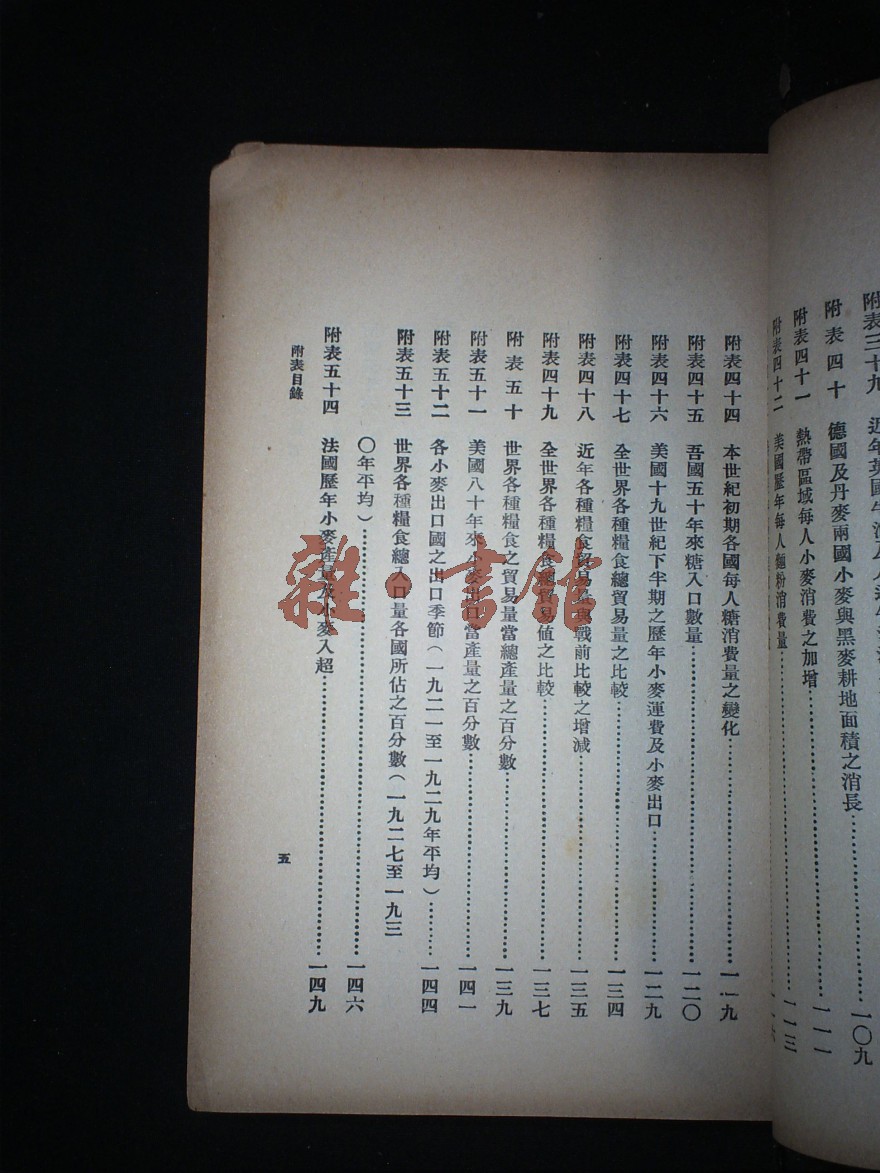 附表三十九
附表四十 德國及丹麥兩國小麥與黑麥耕地面積之消長……一〇九
附表四十一 熱帶區域每人小麥消費之加增……一一一
附表四十二 美國歷年每人麵粉消費量……一一三
附表四十四 本世紀初期各國每人糖消費量之變化……一一九
附表四十五 吾國五十年來糖入口數量……一二〇
附表四十六 美國十九世紀下半期之歷年小麥運費及小麥出口……一二九
附表四十七 全世界各種糧食總貿易量之比較……一三四
附表四十八 近年各種糧食貿易量與戰前比較之增減……一三五
附表四十九 全世界各種糧食總貿易值之比較……一三七
附表五十 世界各種糧食之貿易量當總產量之百分數……一三九
附表五十一 美國八十年來小麥出口當產量之百分數……一四一
附表五十二 各小麥出口國之出口季節(一九二一至一九二九年平均)……一四四
附表五十三 世界各種糧食總入口量各國所佔之百分數(一九二七至一九三
〇年平均)……一四六
附表五十四 法國歷年小麥產量及小麥入超……一四九
附表目錄
五
雜·書館